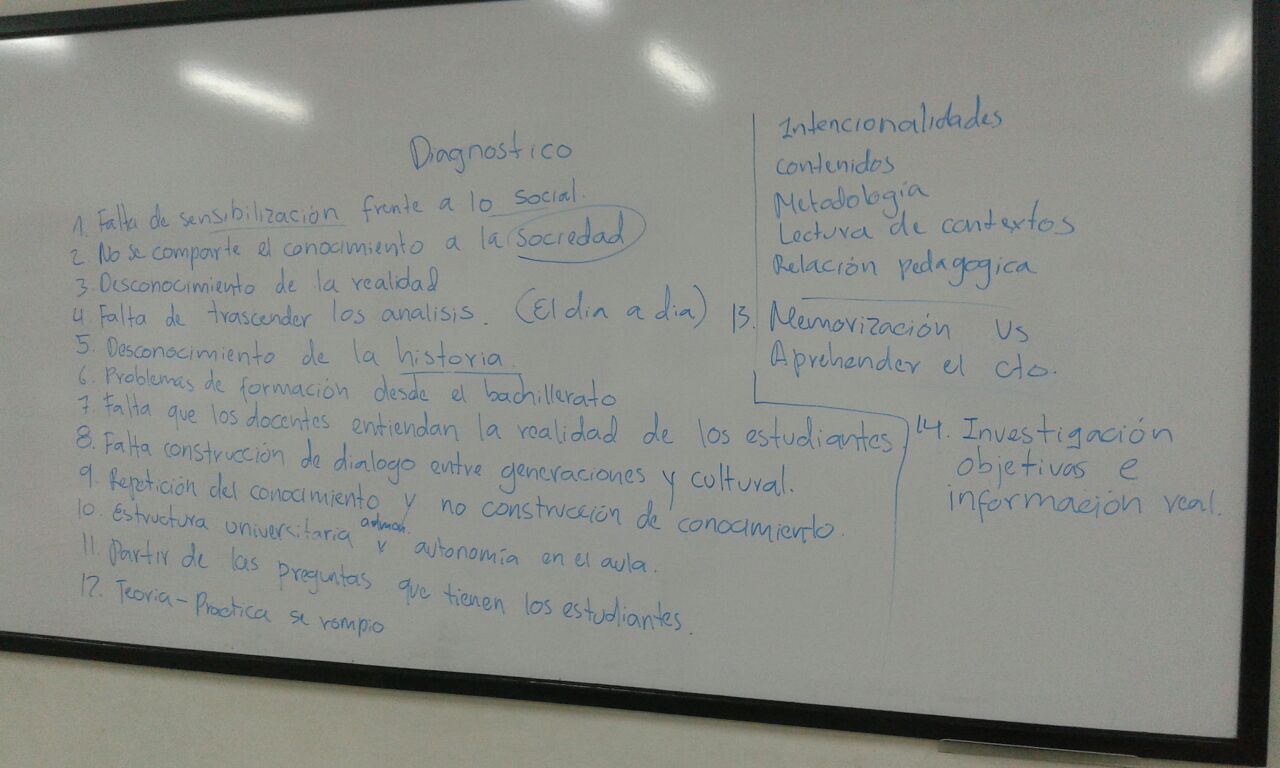 Diagnostico
1. Falta de sensibilización frente a lo social.
2 No se comparte el conocimiento a la sociedad
3. Desconocimiento de la realidad
4. Falta de trascender los analisis. (El dia a dia)
5. Desconocimiento de la historia.
6. Problemas de formación desde el bachillerato
7. Falta que los docentes entiendan la realidad de los estudiantes
8. Falta construcción de dialogo entre generaciones y cultural.
9. Repetición del conocimiento y no construcción de conocimiento.
10. Estructura universitaria y autonomía en el aula.
11. Partir de las preguntas que tienen los estudiantes.
12. Teoria-Practica se rompio
Intencionalidades
contenidos
Metodología
Lectura de contextos
Relación pedagogica
13. Memorización Vs
Aprehender el cto.
14. Investigación
objetivas e
información real.